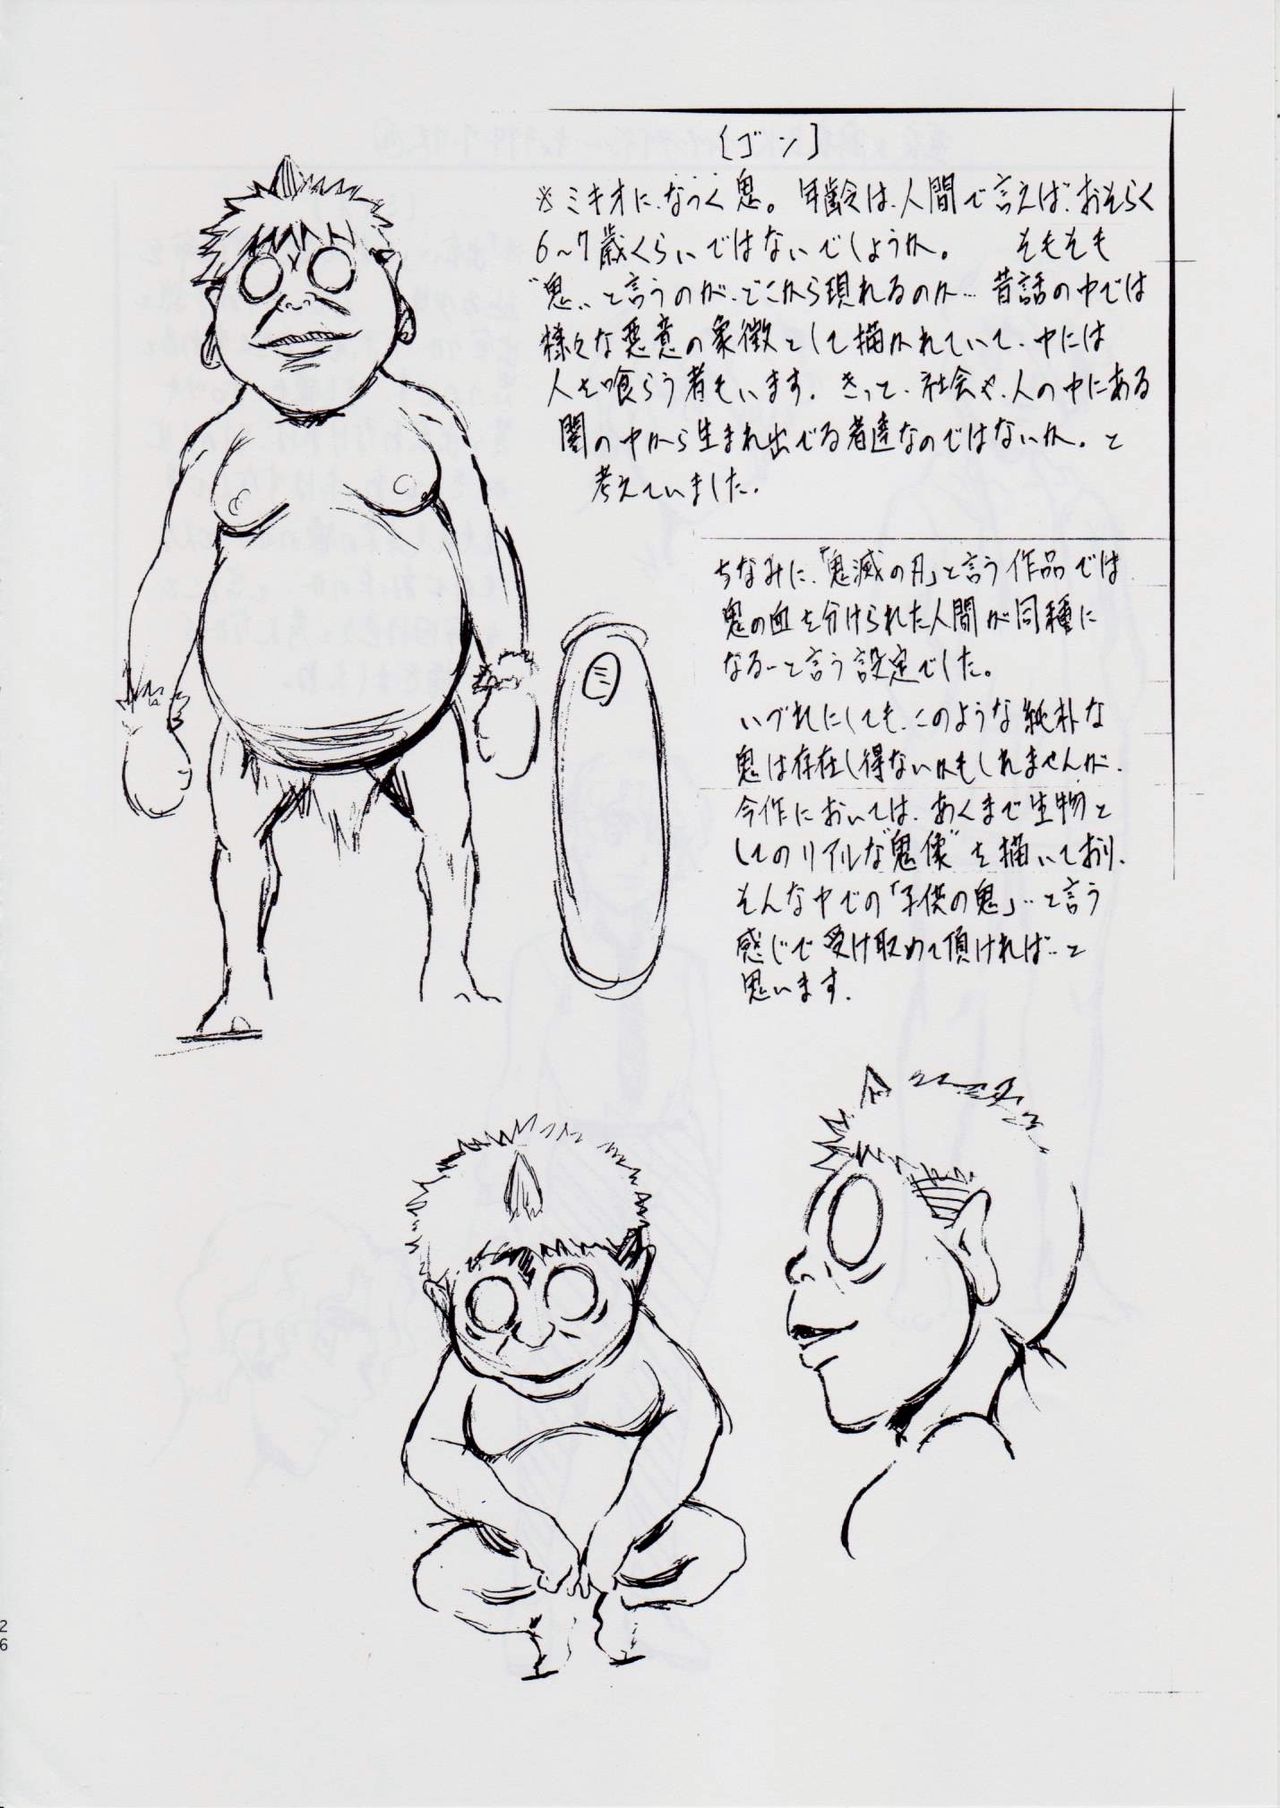 [ゴン]
※ミキオに、なつく鬼。 年齢は、人間で言えば、おそらく
6〜7歳くらいではないでしょうか。 そもそも
"鬼"と言うのが、どこから現れるのか… 昔話の中では
様々な悪意の象徴として描かれていて、中には
人を喰らう者もいます。きっと、社会や、人の中にある
闇の中から生まれ出でる者達なのではないか。と
考えていました。
ちなみに、「鬼滅の刃」と言う作品では
鬼の血を分けられた人間が同種に
なる…と言う設定でした。
いづれにしても、このような純朴な
鬼は存在し得ないかもしれませんが、
今作においては、あくまで生物と
してのリアルな"鬼像"を描いており、
そんな中での「子供の鬼」…と言う
感じで受け取めて頂ければ…と
思います。
26